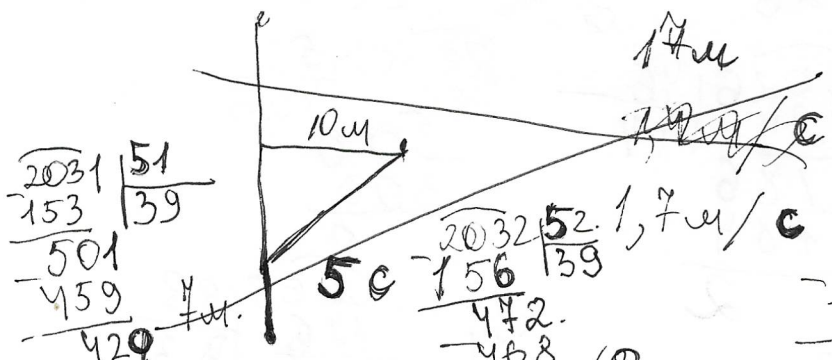 17м
10м
1,7м/с
2031 51
-153 39
501
-459
429
7м.
5с
2032 52.
-156 39
472.
-468